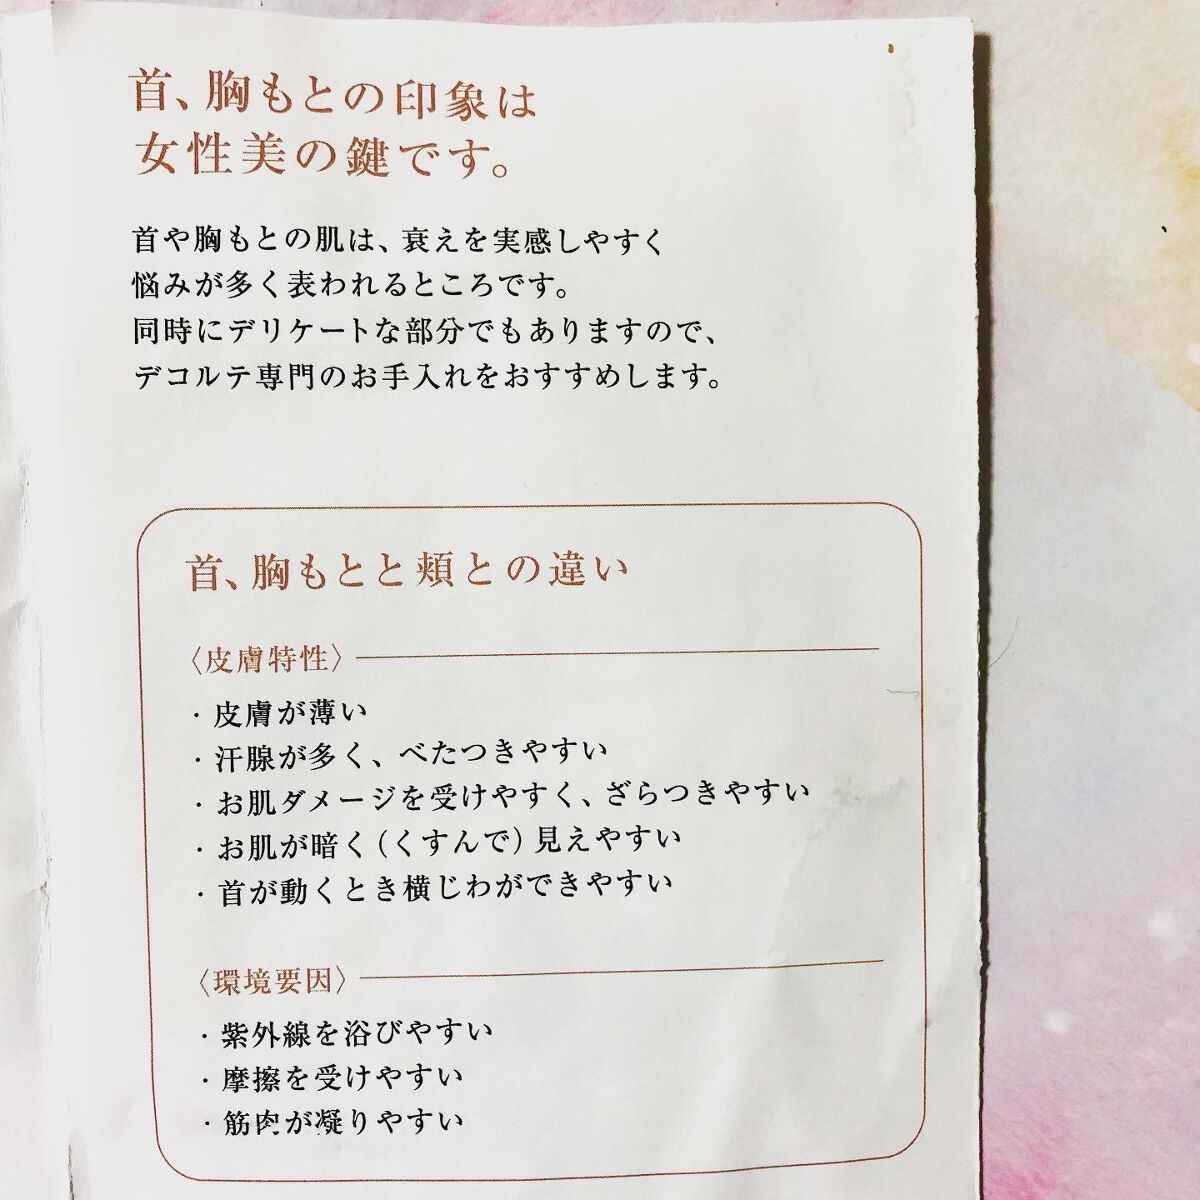 首、胸もとの印象は
女性美の鍵です。
首や胸もとの肌は、衰えを実感しやすく
悩みが多く表われるところです。
同時にデリケートな部分でもありますので、
デコルテ専門のお手入れをおすすめします。
首、胸もとと頬との違い
〈皮膚特性〉
・皮膚が薄い
・汗腺が多く、べたつきやすい
・お肌ダメージを受けやすく、ざらつきやすい
・お肌が暗く(くすんで)見えやすい
・首が動くとき横じわができやすい
〈環境要因〉
・紫外線を浴びやすい
・摩擦を受けやすい
・筋肉が凝りやすい